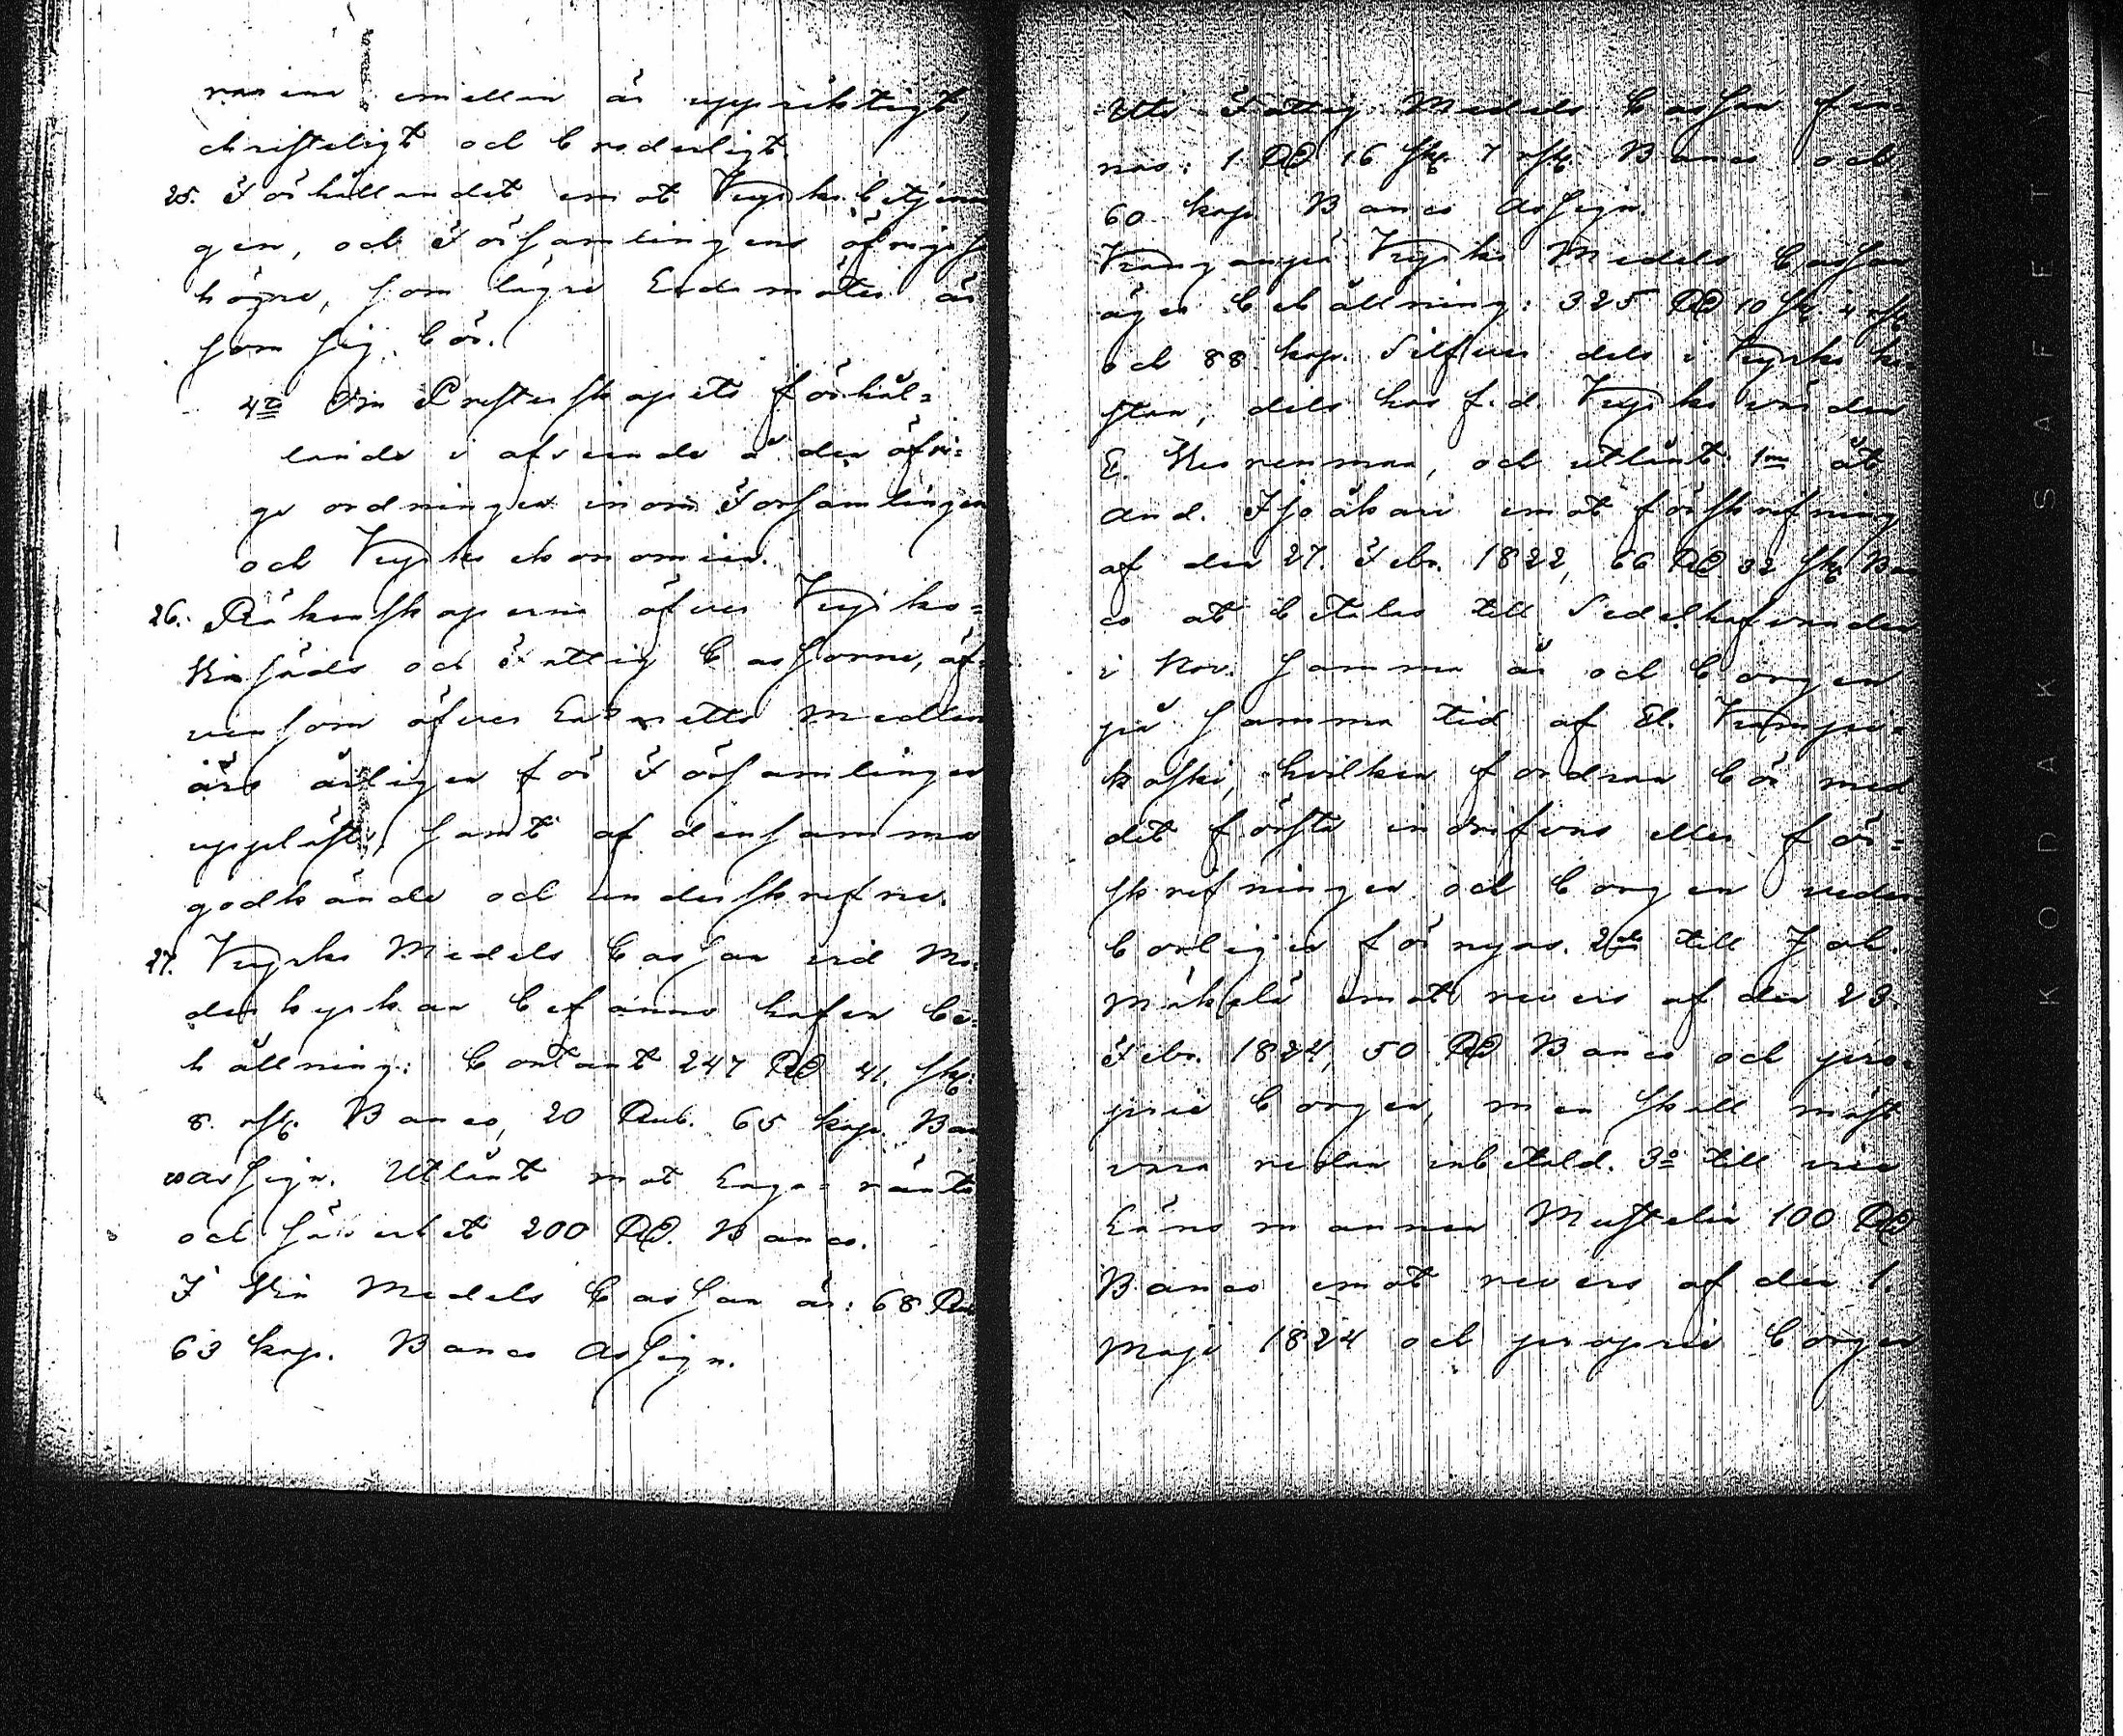 rarne emellan är uppriktigt,
christeligt och broderligt.
25. Förhållandet emot Kyrko betjenin
gen, och Församlingens öfrige så
högre, som lägre Ledamöter är
som sig bör.
4:o Om Presterskapets förhål=
lande i afseende å den öfri=
ge ordningen inom Församlingen
och Kyrko ekonomien.
26. Räkenskaperne öfver Kyrko=
Vinsäds och Fattig Cassorne, äf=
vensom öfver Lasaretts Medlen
äro årligen för Församlingen
uppläste, samt af densamma
godkände och underskrefne.
27. Kyrko Medels Cassan vid Mo=
derkyrkan befanns hafva be=
hållning: Contant 247 RD 41. sk.
8. rst. Banco, 20 Rub. 65 kop. Ban
co Assign. Utlånt mot Laga ränta
och säkerhet 200 RD. Banco.
I Vin Medels Cassan är: 68 Rub
63 kop. Banco Assign.
Uti Fattig Medels Cassan fin=
nas: 1 RD 16 sk. 7 rst. Banco och
60 kop. Banco Assign.
Kyrko Medels Cassan
äger behållning: 325 RD 10 sk. 4 rst.
och 88 kop. Silfver dels i Kyrko ki=
stan, dels hos f.d. Kyrko värden
E. och utlånt 1:mo åt
And. Isoåkari emot förskrifning
af den 27. Febr. 1822, 66 RD 32 sk. Ban
co at betalas till Sedelhafvanden
i Nov. samma år och borgen
på samma tid af El.
koski, hvilken fordran bör med
det första indrifvas eller för=
skrifningen och borgen veder
börligen förnyas. 2:do till Joh.
Mäkelä emot revers af den 23.
Febr. 1824, 50 RD Banco och pro=
prie borgen, men skall mäst
vara redan inbetald. 3:o till
Länsmannen Mustelin 100 RD
Banco emot revers af den 1.
Maji 1824 och proprie borgen